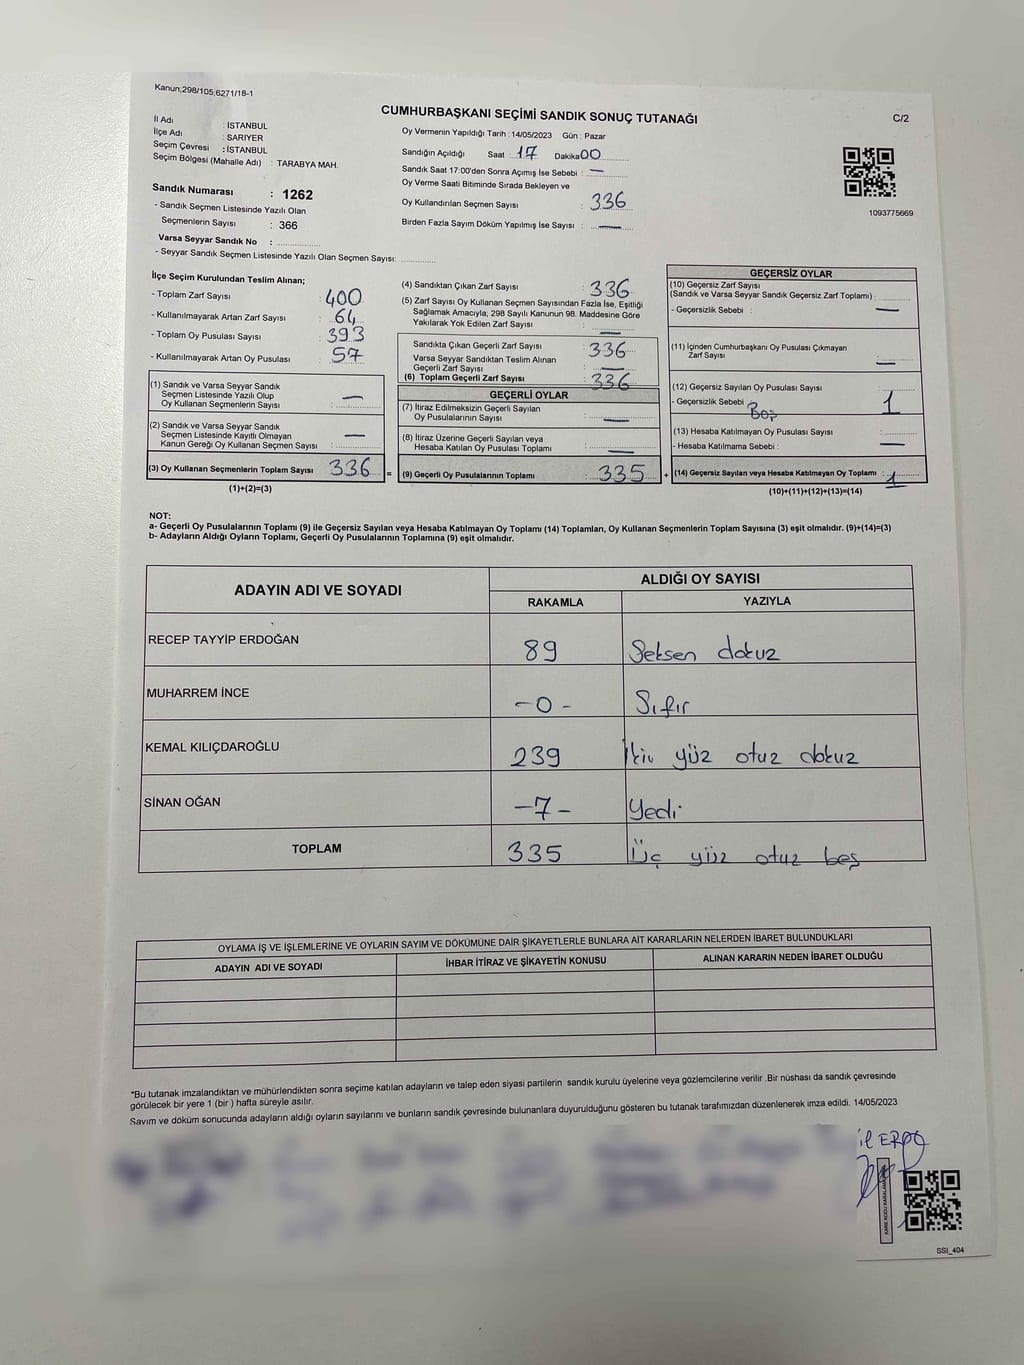 Kanun,298/105,6271/18-1
CUMHURBAŞKANI SEÇİMİ SANDIK SONUÇ TUTANAĞI
C/2
İl Adı : İSTANBUL
İlçe Adı : SARIYER
Seçim Çevresi : İSTANBUL
Seçim Bölgesi (Mahalle Adı) : TARABYA MAH.
Sandık Numarası : 1262
- Sandık Seçmen Listesinde Yazılı Olan
Seçmenlerin Sayısı : 366
Varsa Seyyar Sandık No :
- Seyyar Sandık Seçmen Listesinde Yazılı Olan Seçmen Sayısı:
Oy Vermenin Yapıldığı Tarih : 14/05/2023 Gün : Pazar
Sandığın Açıldığı Saat : 17 Dakika 00
Sandık Saat 17:00'den Sonra Açımış İse Sebebi : —
Oy Verme Saati Bitiminde Sırada Bekleyen ve
Oy Kullandırılan Seçmen Sayısı : 336
Birden Fazla Sayım Döküm Yapılmış İse Sayısı : —
1093775669
İlçe Seçim Kurulundan Teslim Alınan;
- Toplam Zarf Sayısı : 400
- Kullanılmayarak Artan Zarf Sayısı : 64
- Toplam Oy Pusulası Sayısı : 393
- Kullanılmayarak Artan Oy Pusulası : 57
(1) Sandık ve Varsa Seyyar Sandık
Seçmen Listesinde Yazılı Olup
Oy Kullanan Seçmenlerin Sayısı : —
(2) Sandık ve Varsa Seyyar Sandık
Seçmen Listesinde Kayıtlı Olmayan
Kanun Gereği Oy Kullanan Seçmen Sayısı : —
(3) Oy Kullanan Seçmenlerin Toplam Sayısı 336 =
(1)+(2)=(3)
(4) Sandıktan Çıkan Zarf Sayısı : 336
(5) Zarf Sayısı Oy Kullanan Seçmen Sayısından Fazla İse, Eşitliği
Sağlamak Amacıyla, 298 Sayılı Kanunun 98. Maddesine Göre
Yakılarak Yok Edilen Zarf Sayısı : —
Sandıkta Çıkan Geçerli Zarf Sayısı : 336
Varsa Seyyar Sandıktan Teslim Alınan
Geçerli Zarf Sayısı : —
(6) Toplam Geçerli Zarf Sayısı : 336
GEÇERLİ OYLAR
(7) İtiraz Edilmeksizin Geçerli Sayılan
Oy Pusulalarının Sayısı : —
(8) İtiraz Üzerine Geçerli Sayılan veya
Hesaba Katılan Oy Pusulası Toplamı : —
(9) Geçerli Oy Pusulalarının Toplamı : 335 +
GEÇERSİZ OYLAR
(10) Geçersiz Zarf Sayısı
(Sandık ve Varsa Seyyar Sandık Geçersiz Zarf Toplamı) :
- Geçersizlik Sebebi : —
(11) İçinden Cumhurbaşkanı Oy Pusulası Çıkmayan
Zarf Sayısı : —
(12) Geçersiz Sayılan Oy Pusulası Sayısı : 1
- Geçersizlik Sebebi Boş
(13) Hesaba Katılmayan Oy Pusulası Sayısı :
- Hesaba Katılmama Sebebi : —
(14) Geçersiz Sayılan veya Hesaba Katılmayan Oy Toplamı : 1
(10)+(11)+(12)+(13)=(14)
NOT:
a- Geçerli Oy Pusulalarının Toplamı (9) ile Geçersiz Sayılan veya Hesaba Katılmayan Oy Toplamı (14) Toplamları, Oy Kullanan Seçmenlerin Toplam Sayısına (3) eşit olmalıdır. (9)+(14)=(3)
b- Adayların Aldığı Oyların Toplamı, Geçerli Oy Pusulalarının Toplamına (9) eşit olmalıdır.
ADAYIN ADI VE SOYADI ALDIĞI OY SAYISI
RAKAMLA YAZIYLA
RECEP TAYYİP ERDOĞAN 89 Seksen dokuz
MUHARREM İNCE -0- Sıfır
KEMAL KILIÇDAROĞLU 239 İki yüz otuz dokuz
SİNAN OĞAN -7- Yedi
TOPLAM 335 Üç yüz otuz beş
OYLAMA İŞ VE İŞLEMLERİNE VE OYLARIN SAYIM VE DÖKÜMÜNE DAİR ŞİKAYETLERLE BUNLARA AİT KARARLARIN NELERDEN İBARET BULUNDUKLARI
ADAYIN ADI VE SOYADI İHBAR İTİRAZ VE ŞİKAYETİN KONUSU ALINAN KARARIN NEDEN İBARET OLDUĞU
*Bu tutanak imzalandıktan ve mühürlendikten sonra seçime katılan adayların ve talep eden siyasi partilerin sandık kurulu üyelerine veya gözlemcilerine verilir .Bir nüshası da sandık çevresinde
görülecek bir yere 1 (bir ) hafta süreyle asılır.
Sayım ve döküm sonucunda adayların aldığı oyların sayılarını ve bunların sandık çevresinde bulunanlara duyurulduğunu gösteren bu tutanak tarafımızdan düzenlenerek imza edildi. 14/05/2023
SSI_404